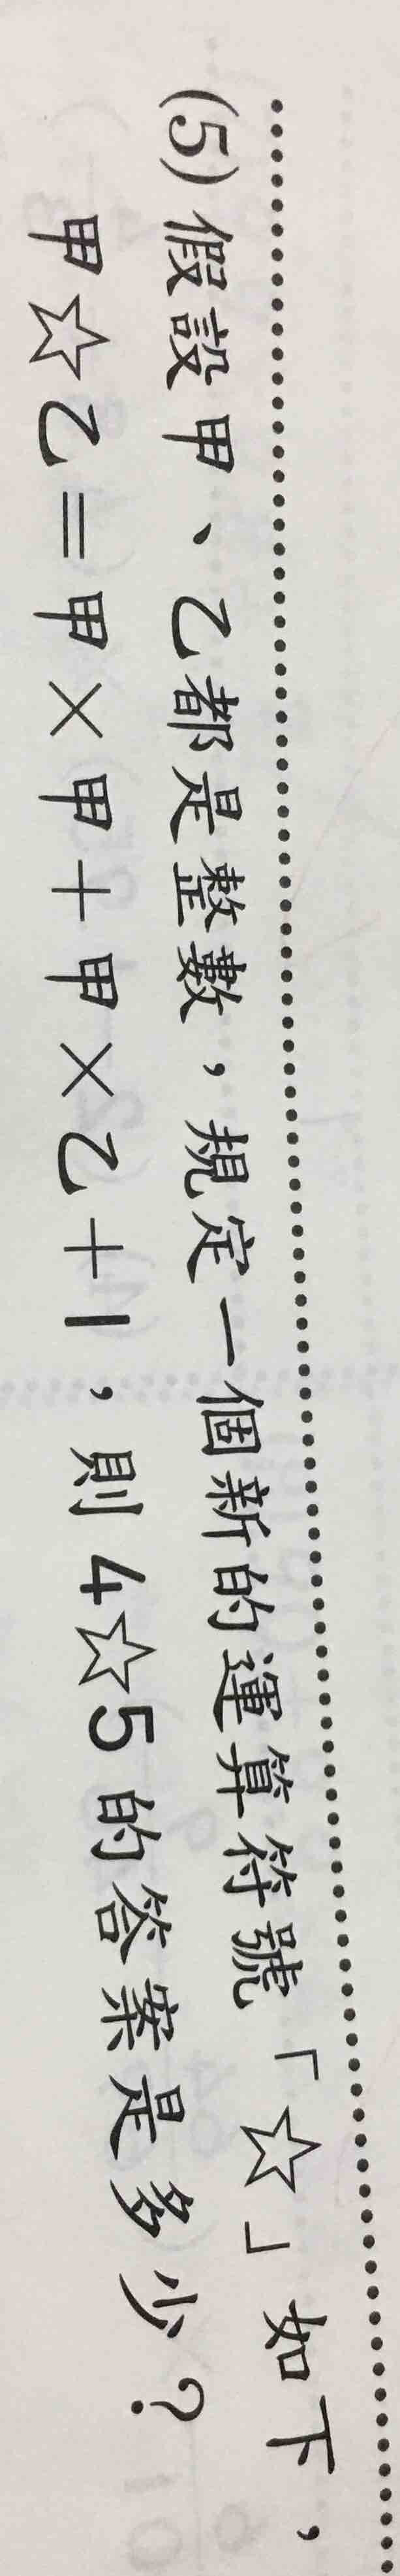 (5) 假設甲、乙都是整數，規定一個新的運算符號「☆」如下，
甲☆乙＝甲×甲＋甲×乙＋1，則4☆5的答案是多少？